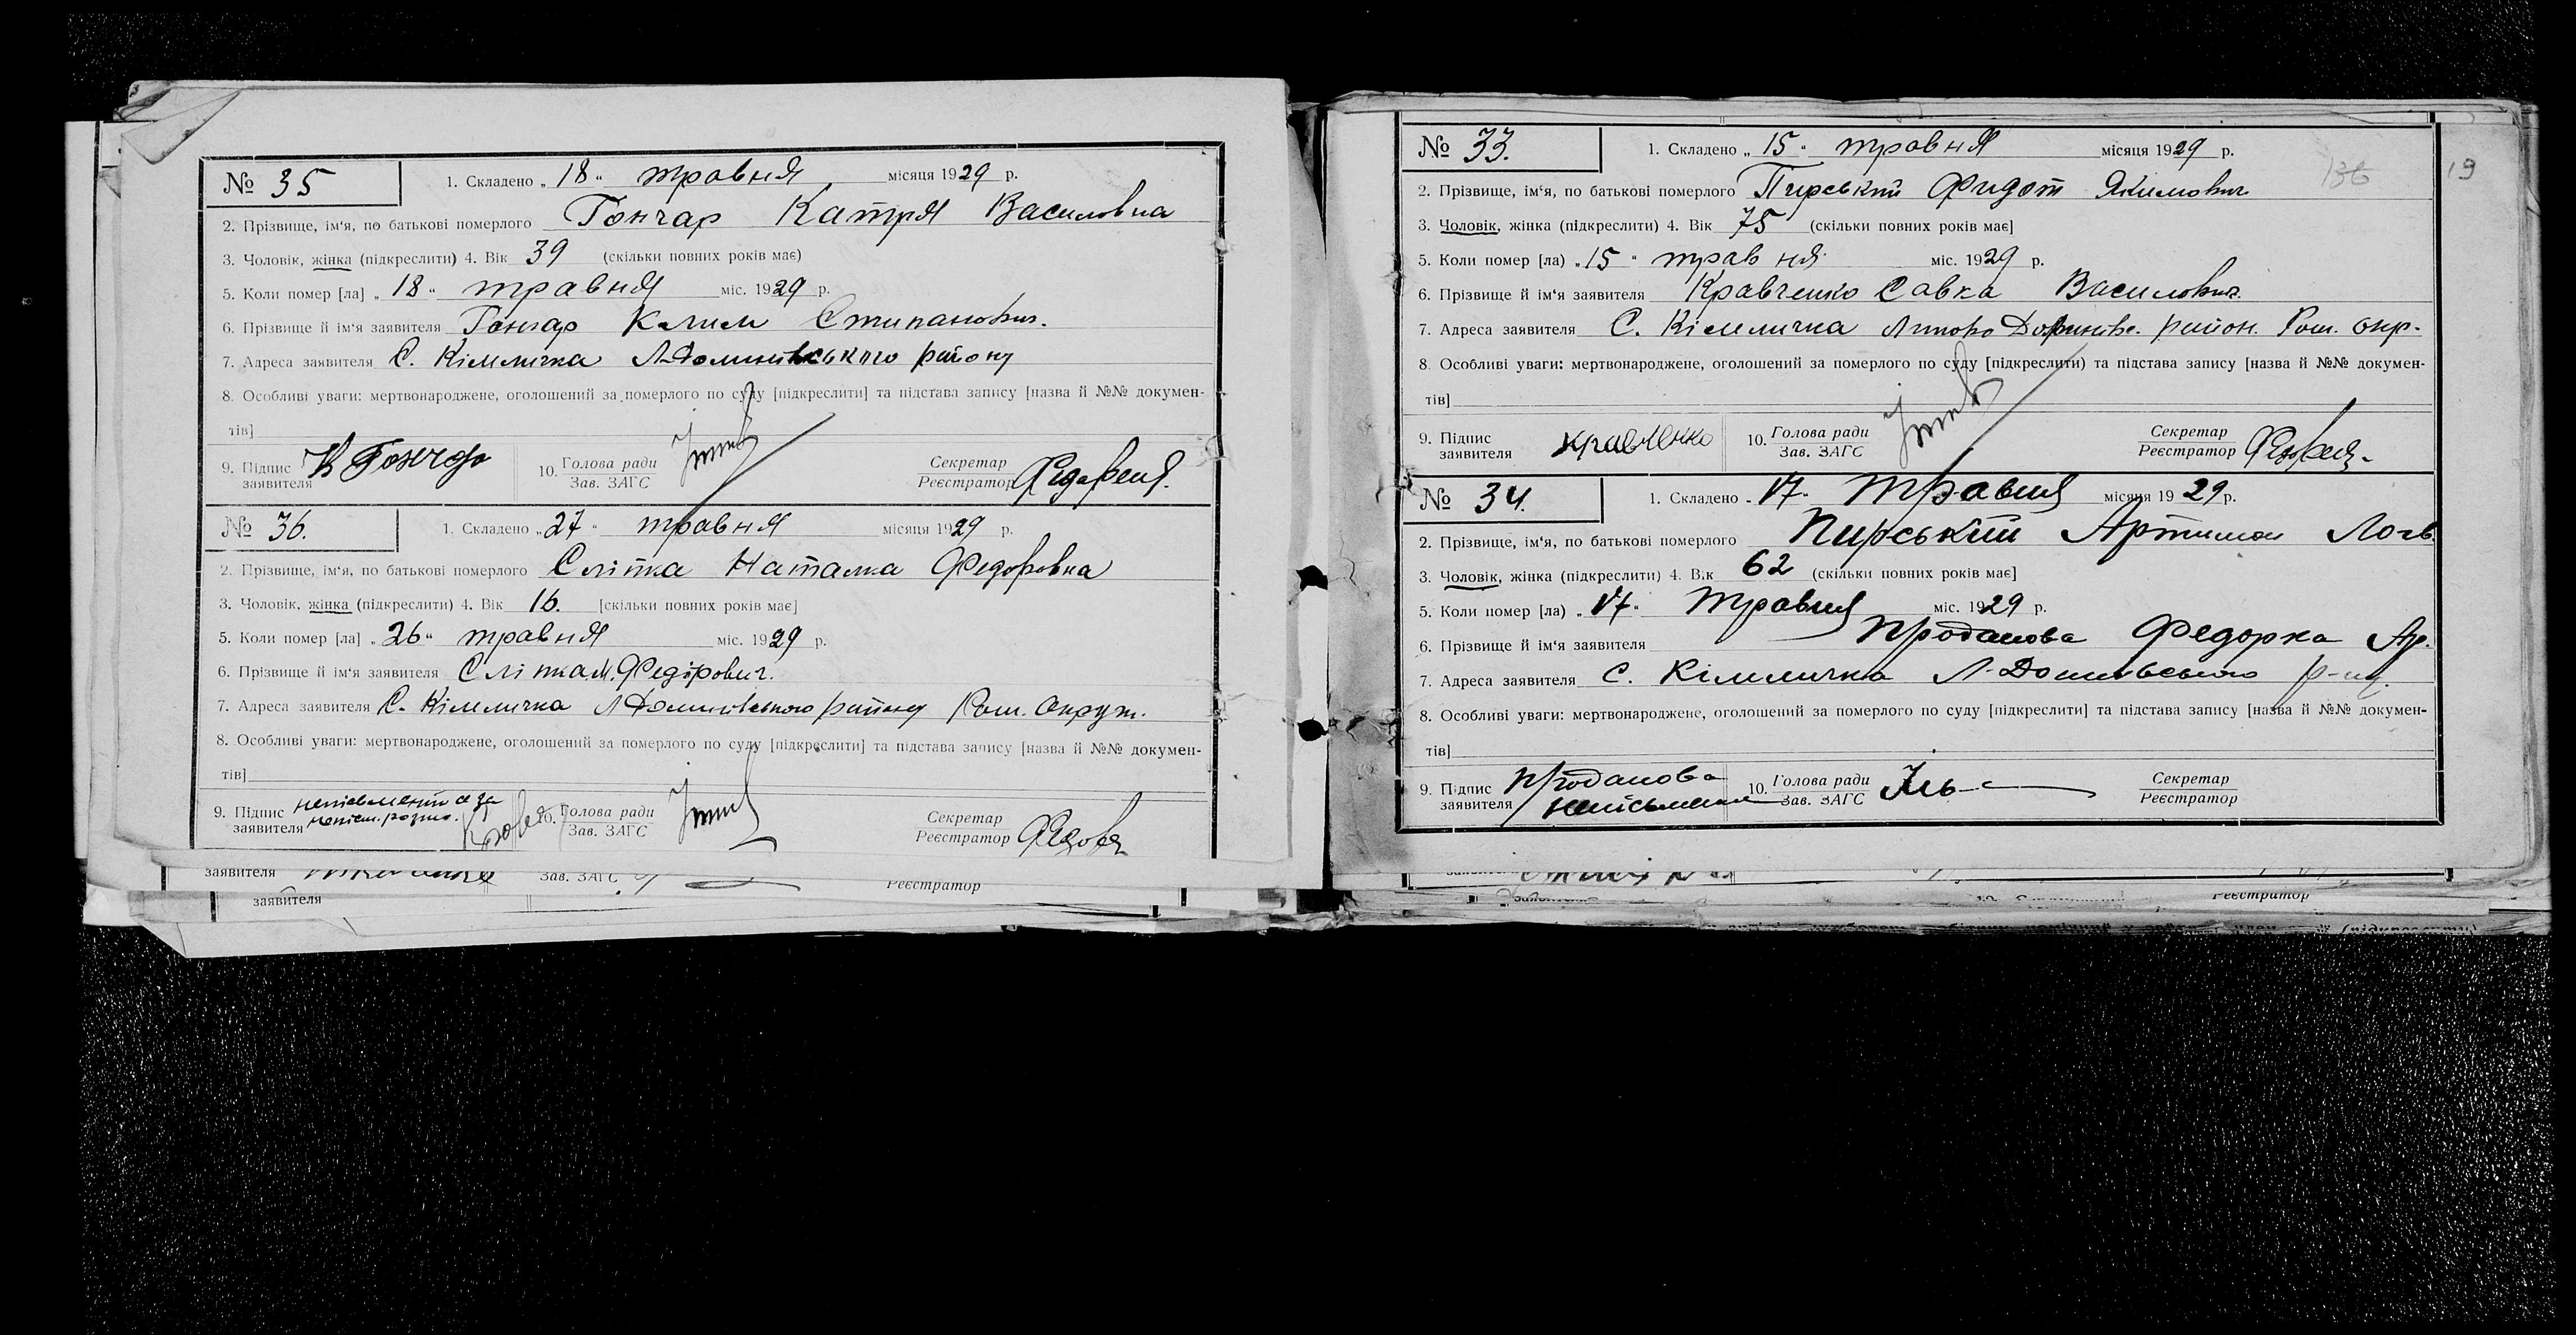 № 35
1. Складено „ 18 “ травня місяця 1929 р.
2. Прізвище, ім‘я, по батькові померлого Гончар Катря Василовна
3. Чоловік, жінка (підкреслити) 4. Вік 39 (скільки повних років має)
5. Коли помер [ла] „ 18 “ травня міс. 1929 р.
6. Прізвище й ім‘я заявителя Гончар Клим Степанович.
7. Адреса заявителя С. Кімличка Л-Долинівського району
8. Особливі уваги: мертвонароджене, оголошений за померлого по суду [підкреслити] та підстава запису [назва й №№ докумен-
тів]
9. Підпис заявителя К Гончар 10. Голова ради Зав. ЗАГС Секретар Реєстратор
№ 36.
1. Складено „ 27 “ травня місяця 1929 р.
2. Прізвище, ім‘я, по батькові померлого Сліпка Наталка Федоровна
3. Чоловік, жінка (підкреслити) 4. Вік 16. [скільки повних років має]
5. Коли помер [ла] „ 26 “ травня міс. 1929 р.
6. Прізвище й ім‘я заявителя Сліпка М. Федірович.
7. Адреса заявителя С. Кімличка Л Долинівського району Ром. Округ.
8. Особливі уваги: мертвонароджене, оголошений за померлого по суду [підкреслити] та підстава запису [назва й №№ докумен-
тів]
9. Підпис заявителя 10. Голова ради Зав. ЗАГС Секретар Реєстратор
заявителя Зав. ЗАГС Реєстратор
заявителя
№ 33.
1. Складено „ 15 “ травня місяця 1929 р.
136
19
2. Прізвище, ім‘я, по батькові померлого Пирський Фидот Якимович
3. Чоловік, жінка (підкреслити) 4. Вік 75 (скільки повних років має]
5. Коли помер [ла) „ 15 “ травня міс. 1929 р.
6. Прізвище й ім‘я заявителя Кравченко Савка Василович.
7. Адреса заявителя С. Кімличка Липово Долинівс. район. Ром. окр.
8. Особливі уваги: мертвонароджене, оголошений за померлого по суду [підкреслити) та підстава запису [назва й №№ докумен-
тів]
9. Підпис заявителя Кравченко 10. Голова ради Зав. ЗАГС Секретар Реєстратор
№ 34.
1. Складено „ 17 “ травня місяця 1929 р.
2. Прізвище, ім‘я, по батькові померлого Пирський Артимон Логв.
3. Чоловік, жінка (підкреслити) 4. Вік 62 (скільки повних років має]
5. Коли помер [ла) „ 17 “ травня міс. 1929 р.
6. Прізвище й ім‘я заявителя Проданова Федорка Ар.
7. Адреса заявителя С. Кімличка Л-Долинівського р-ну.
8. Особливі уваги: мертвонароджене, оголошений за померлого по суду [підкреслити] та підстава запису [назва й №№ докумен-
тів]
9. Підпис заявителя Проданова неписьменна 10. Голова ради Зав. ЗАГС Секретар Реєстратор
Реєстратор